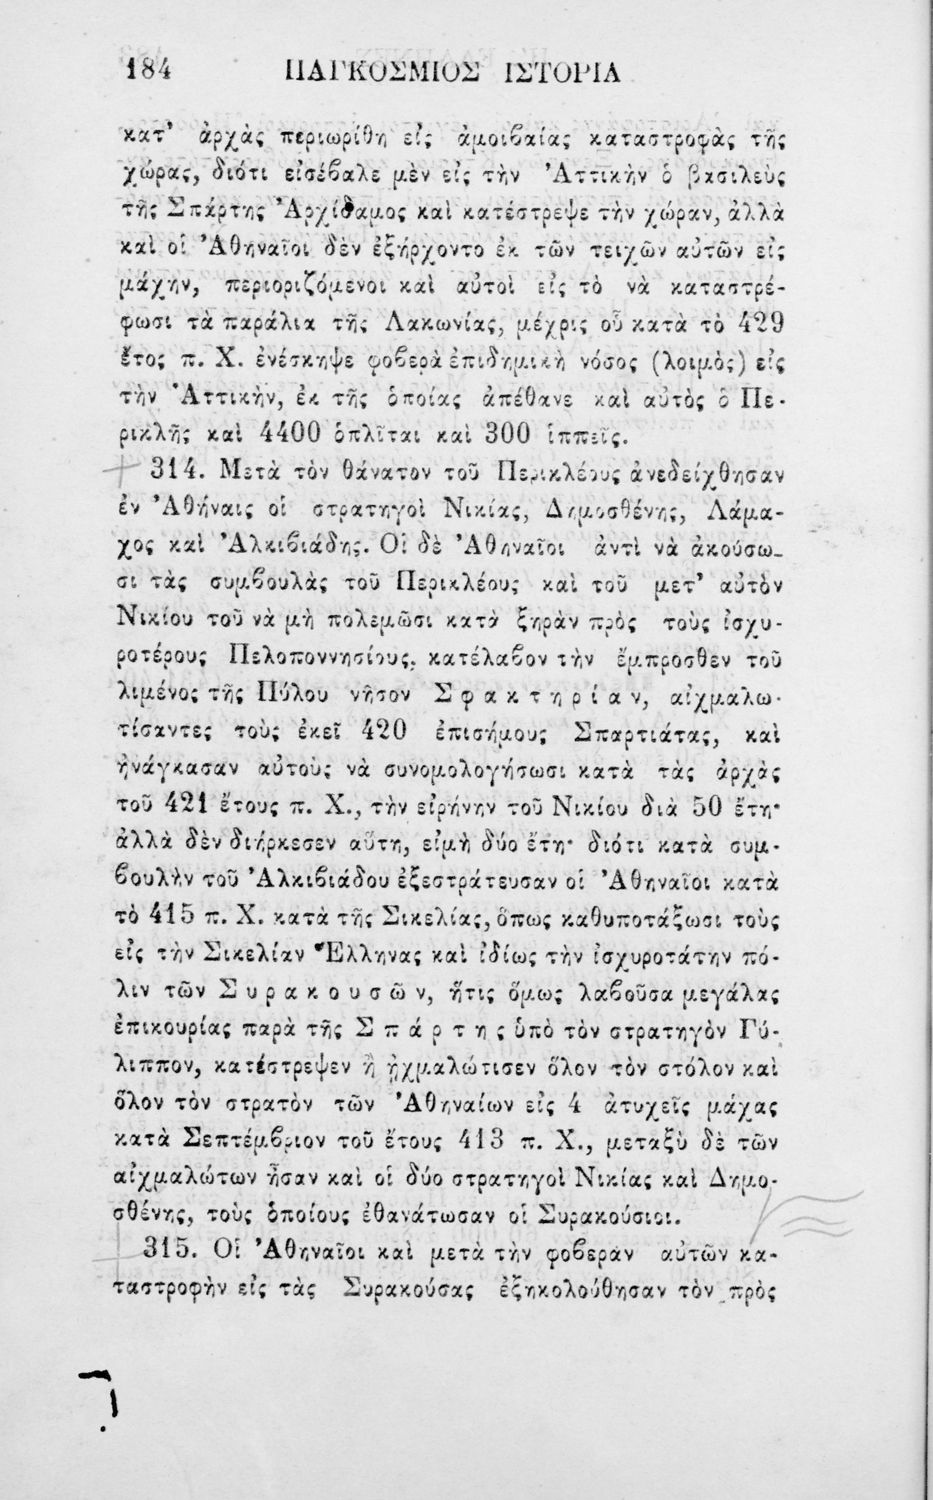 184 ΠΑΓΚΟΣΜΙΟΣ ΙΣΤΟΡΙΑ
κατ’ ἀρχὰς περιωρίθη εἰς ἀμοιβαίας καταστροφὰς τῆς
χώρας, διότι εἰσέβαλε μὲν εἰς τὴν Ἀττικὴν ὁ βασιλεὺς
τῆς Σπάρτης Ἀρχίδαμος καὶ κατέστρεψε τὴν χώραν, ἀλλὰ
καὶ οἱ Ἀθηναῖοι δὲν ἐξήρχοντο ἐκ τῶν τειχῶν αὐτῶν εἰς
μάχην, περιοριζόμενοι καὶ αὐτοὶ εἰς τὸ νὰ καταστρέ-
φωσι τὰ παράλια τῆς Λακωνίας, μέχρις οὗ κατὰ τὸ 429
ἔτος π. Χ. ἐνέσκηψε φοβερὰ ἐπιδημικὴ νόσος (λοιμὸς) εἰς
τὴν Ἀττικὴν, ἐκ τῆς ὁποίας ἀπέθανε καὶ αὐτὸς ὁ Πε-
ρικλῆς καὶ 4400 ὁπλῖται καὶ 300 ἱππεῖς.
314. Μετὰ τὸν θάνατον τοῦ Περικλέους ἀνεδείχθησαν
ἐν Ἀθήναις οἱ στρατηγοὶ Νικίας, Δημοσθένης, Λάμα-
χος καὶ Ἀλκιβιάδης. Οἱ δὲ Ἀθηναῖοι ἀντὶ νὰ ἀκούσω-
σι τὰς συμβουλὰς τοῦ Περικλέους καὶ τοῦ μετ’ αὐτὸν
Νικίου τοῦ νὰ μὴ πολεμῶσι κατὰ ξηρὰν πρὸς τοὺς ἰσχυ-
ροτέρους Πελοποννησίους, κατέλαβον τὴν ἔμπροσθεν τοῦ
λιμένος τῆς Πύλου νῆσον Σφακτηρίαν, αἰχμαλω-
τίσαντες τοὺς ἐκεῖ 420 ἐπισήμους Σπαρτιάτας, καὶ
ἠνάγκασαν αὐτοὺς νὰ συνομολογήσωσι κατὰ τὰς ἀρχὰς
τοῦ 421 ἔτους π. Χ., τὴν εἰρήνην τοῦ Νικίου διὰ 50 ἔτη·
ἀλλὰ δὲν διήρκεσεν αὕτη, εἰμὴ δύο ἔτη· διότι κατὰ συμ-
βουλὴν τοῦ Ἀλκιβιάδου ἐξεστράτευσαν οἱ Ἀθηναῖοι κατὰ
τὸ 415 π. Χ. κατὰ τῆς Σικελίας, ὅπως καθυποτάξωσι τοὺς
εἰς τὴν Σικελίαν Ἕλληνας καὶ ἰδίως τὴν ἰσχυροτάτην πό-
λιν τῶν Συρακουσῶν, ἥτις ὅμως λαβοῦσα μεγάλας
ἐπικουρίας παρὰ τῆς Σπάρτης ὑπὸ τὸν στρατηγὸν Γύ-
λιππον, κατέστρεψεν ἢ ᾐχμαλώτισεν ὅλον τὸν στόλον καὶ
ὅλον τὸν στρατὸν τῶν Ἀθηναίων εἰς 4 ἀτυχεῖς μάχας
κατὰ Σεπτέμβριον τοῦ ἔτους 413 π. Χ., μεταξὺ δὲ τῶν
αἰχμαλώτων ἦσαν καὶ οἱ δύο στρατηγοὶ Νικίας καὶ Δημο-
σθένης, τοὺς ὁποίους ἐθανάτωσαν οἱ Συρακούσιοι.
315. Οἱ Ἀθηναῖοι καὶ μετὰ τὴν φοβερὰν αὐτῶν κα-
ταστροφὴν εἰς τὰς Συρακούσας ἐξηκολούθησαν τὸν πρὸς